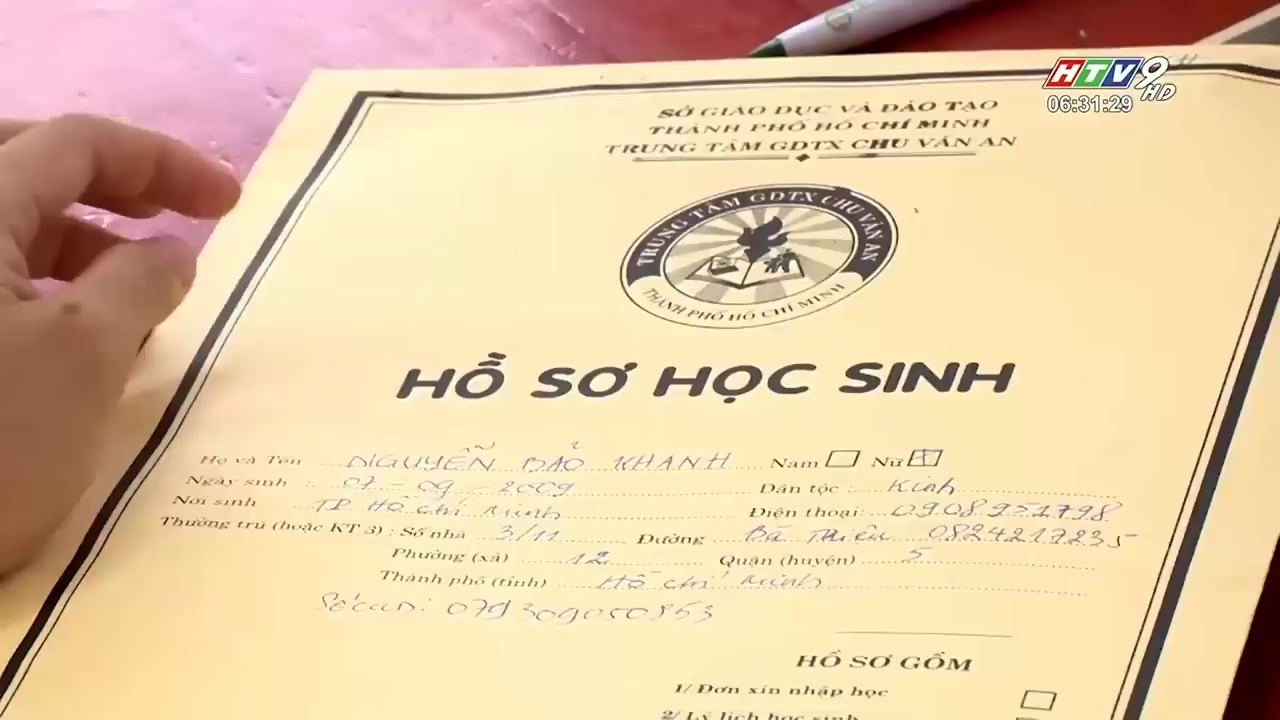 HTV9 HD
06:31:29
SỞ GIÁO DỤC VÀ ĐÀO TẠO
THÀNH PHỐ HỒ CHÍ MINH
TRUNG TÂM GDTX CHU VĂN AN
TRUNG TÂM GDTX CHU VĂN AN
THÀNH PHỐ HỒ CHÍ MINH
HỒ SƠ HỌC SINH
Họ và Tên : NGUYỄN BẢO KHANH Nam Nữ
Ngày sinh : 07-09-2009 Dân tộc : Kinh
Nơi sinh TP Hồ Chí Minh Điện thoại:
Thường trú (hoặc KT 3) : Số nhà 3/11 Đường Bà Triệu
Phường (xã) 12 Quận (huyện) 5
Thành phố (tỉnh) Hồ Chí Minh
HỒ SƠ GỒM
1/ Đơn xin nhập học
2/ Lý lịch học sinh